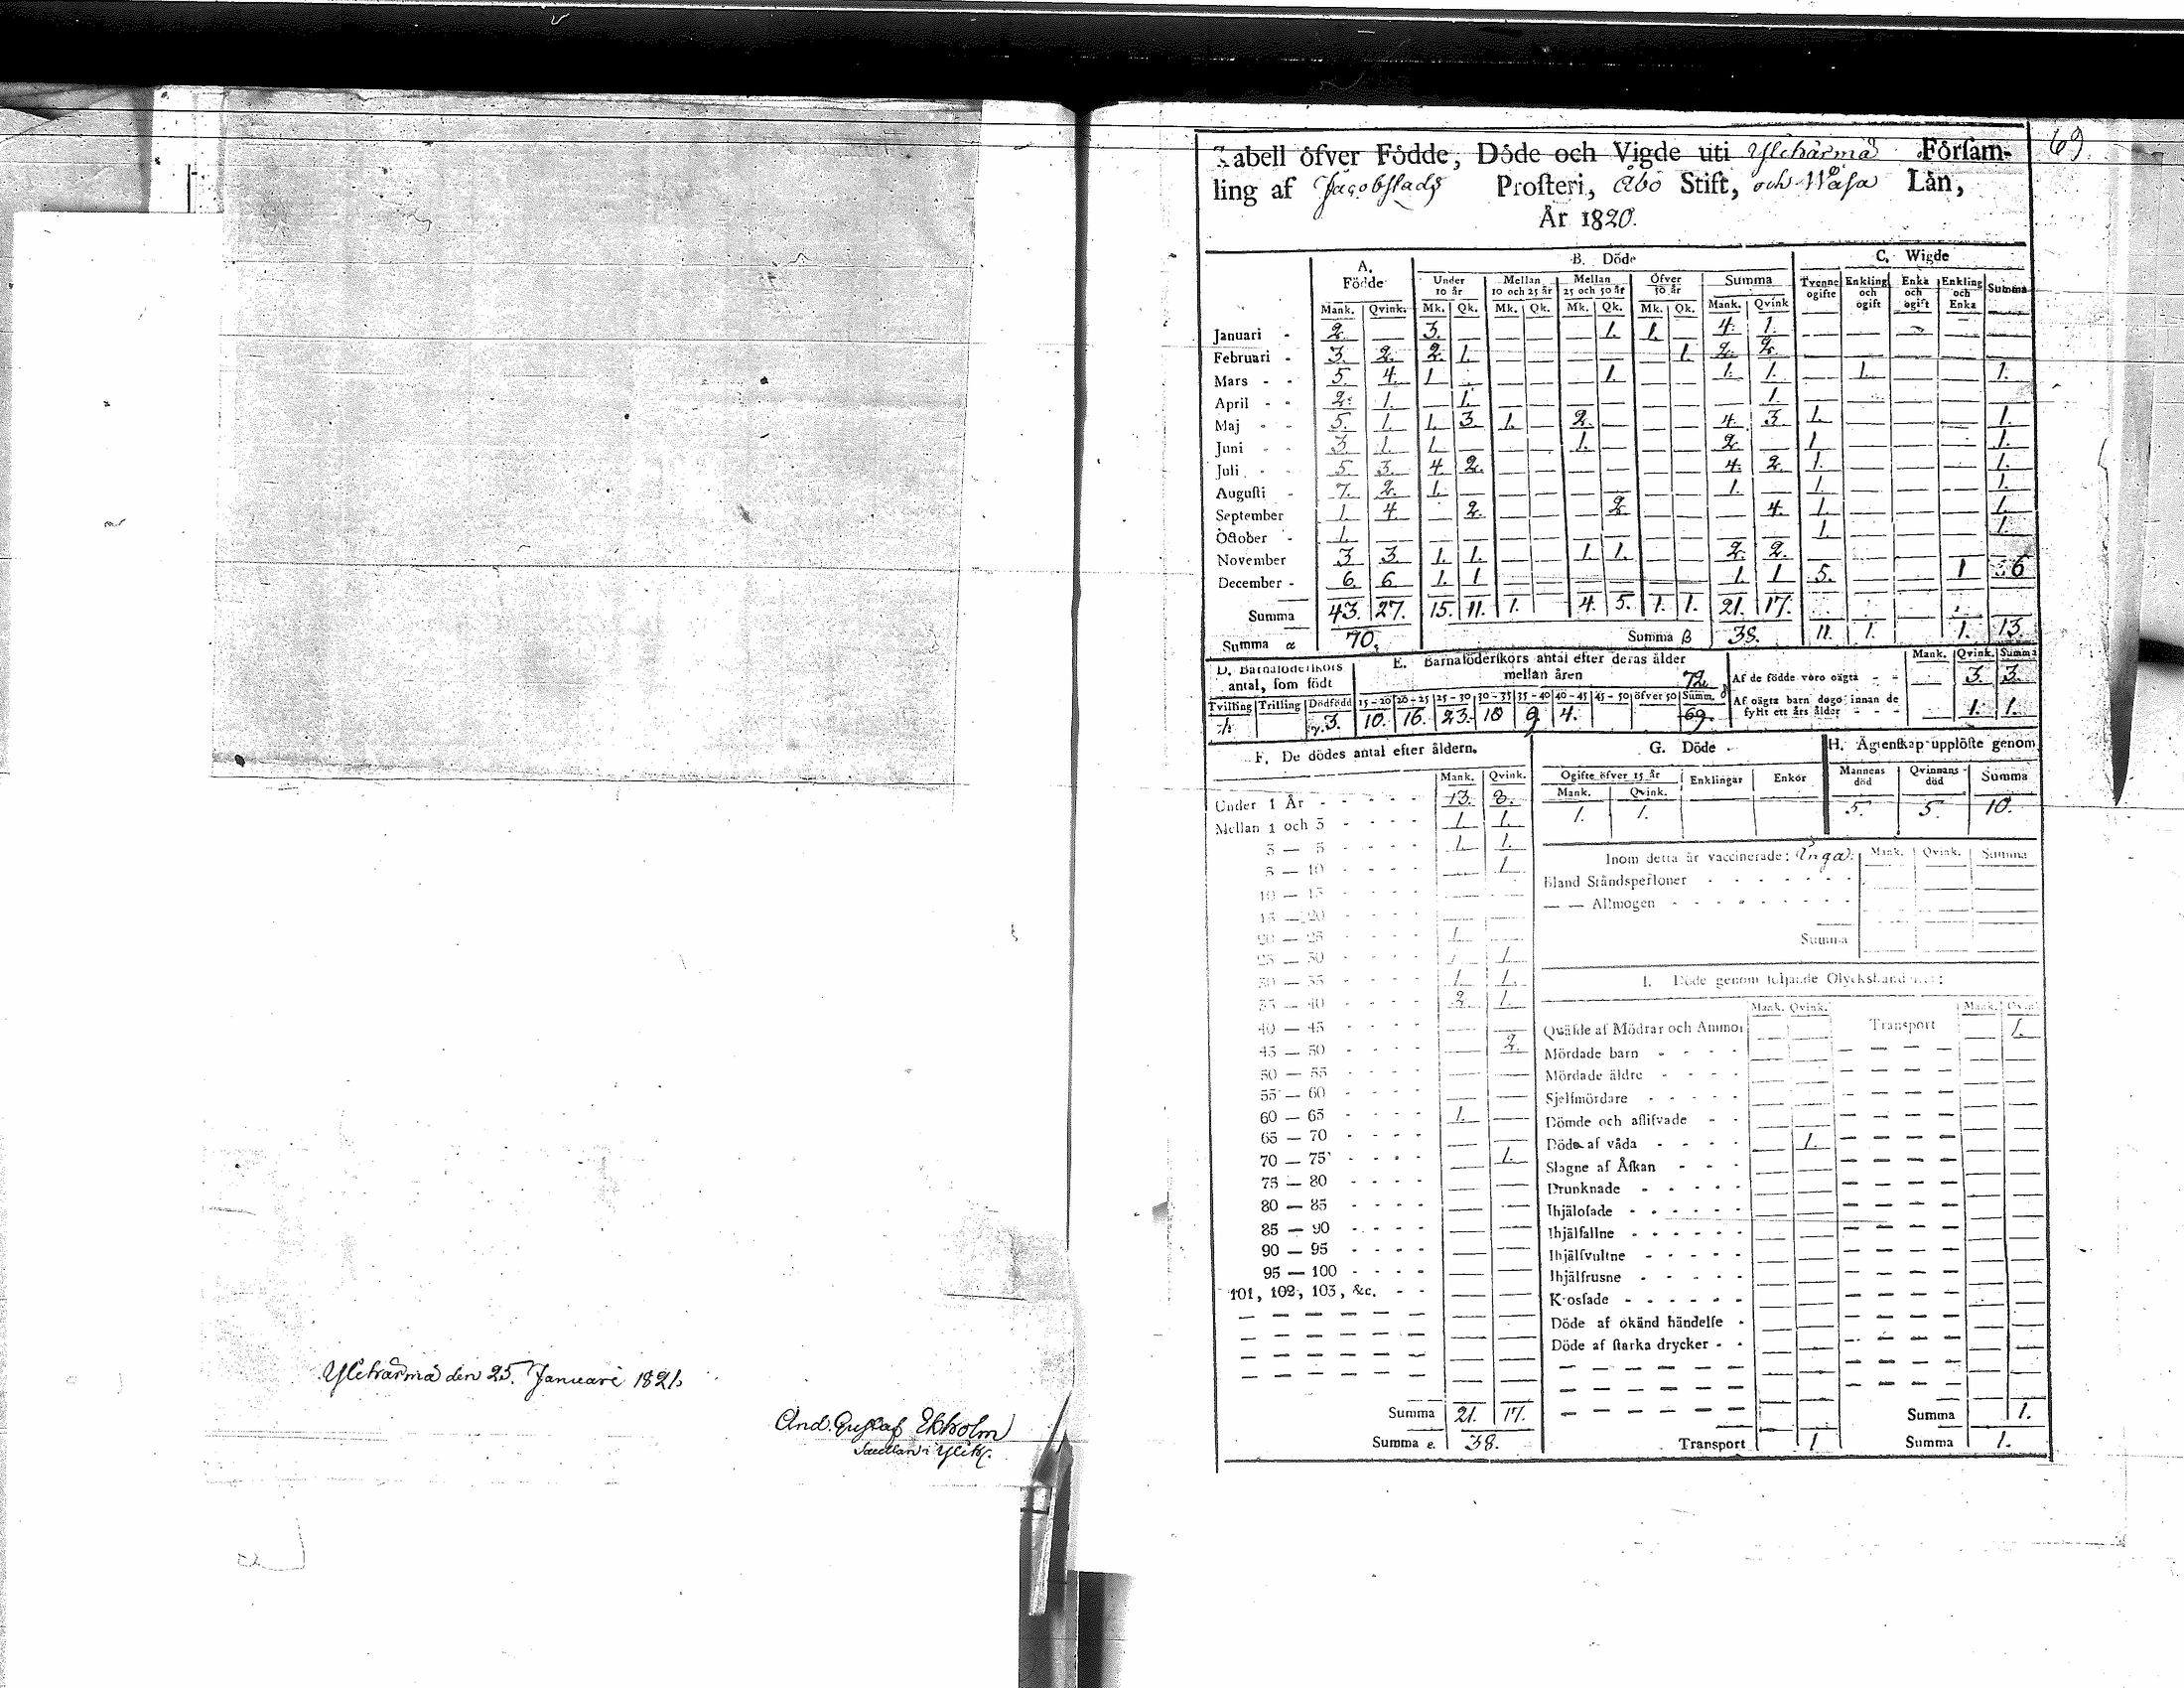 Ylihärmä den 25. Januari 1821.
And. Gustaf Ekholm
69.
Tabell öfver Födde, Döde och Vigde uti Ylihärmä Förſam-
ling af Jacobstads Proſteri, Åbo Stift, och Waſa Län,
År 1820.
A. Födde B. Döde C. Wigde
Under 10 år Mellan 10 och 25 år Mellan 25 och 50 år Öfver 50 år Summa Tvenne ogifte Enkling och ogift Enka och ogift Enkling och Enka Summa
Mank. Qvink. Mk. Qk. Mk. Qk. Mk. Qk. Mk. Qk. Mank. Qvink
Januari - 2. — 3. — — — — 1. 1. — 4. 1. — — — — —
Februari - 3. 2. 2. 1. — — — — — 1. 2. 2. — — — — —
Mars - - 5. 4. 1 — — — — 1. — — 1. 1. — 1. — — 1.
April - - 2. 1. — 1. — — — — — — — 1. — — — — —
Maj - - 5. 1. 1. 3. 1. — 2. — — — 4. 3. 1. — — — 1.
Juni - - 3. 1. 1. — — — 1. — — — 2. — 1. — — — 1.
Juli - - 5. 3. 4. 2. — — — — — — 4. 2. 1. — — — 1.
Auguſti - 7. 2. 1. — — — — — — — 1. — 1. — — — 1.
September 1. 4. — 2. — — — 2. — — — 4. 1. — — — 1.
October - 1. — — — — — — — — — — — 1. — — — 1.
November 3. 3. 1. 1. — — 1. 1. — — 2. 2. — — — — —
December - 6. 6 1. 1 — — — — — — 1. 1 5. — — 1 6
Summa 43. 27. 15. 11. 1. 4. 5. 1. 1. 21. 17.
Summa α 70. Summa β 38. 11. 1. 1. 13.
D. Barnaföderſkors antal, ſom födt
Tvilling Trilling Dödfödd
1. 3.
E. Barnaföderſkors antal efter deras ålder
mellan åren
15 - 20 20 - 25 25 - 30 30 - 35 35 - 40 40 - 45 45 - 50 öfver 50 Summ.
10. 16. 23. 10 9. 4. 69.
Mank. Qvink. Summa
Af de födde voro oägta - - 3. 3.
Af oägta barn dogo innan de fyllt ett års ålder - - - 1. 1.
F. De dödes antal efter åldern.
Mank. Qvink.
Under 1 År - - - - - 13. 8.
Mellan 1 och 3 - - - - 1. 1.
3 — 5 - - - - 1. 1.
5 — 10 - - - - — 1.
10 — 15 - - - - — —
15 — 20 - - - - — —
20 — 25 - - - - 1. —
25 — 30 - - - - 1.
30 — 35 - - - - 1. 1.
35 — 40 - - - - 2. 1.
40 — 45 - - - - — —
45 — 50 - - - - — 2.
50 — 55 - - - - — —
55 — 60 - - - - — —
60 — 65 - - - - 1. —
65 — 70 - - - - — —
70 — 75 - - - - — 1.
75 — 80 - - - - — —
80 — 85 - - - - — —
85 — 90 - - - - — —
90 — 95 - - - - — —
95 — 100 - - - - — —
101, 102, 103, &c. - - — —
Summa 21. 17.
Summa e. 38.
G. Döde
Ogifte öfver 15 år Enklingar Enkor
Mank. Qvink.
1. 1.
H. Ägtenſkap upplöſte genom
Mannens död Qvinnans död Summa
5. 5. 10.
Inom detta år vaccinerade: Inga. Mank. Qvink. Summa
Bland Ståndsperſoner - - - - - - -
— — Allmogen - - - - - - - - -
Summa
I. Döde genom följande Olyckshändelser:
Mank. Qvink. Mank. Qvin
Qväfde af Mödrar och Ammor Transport 1.
Mördade barn - - - -
Mördade äldre - - - -
Sjelfmördare - - - - -
Dömde och aflifvade - -
Döde af våda - - - - 1.
Slagne af Åſkan - - -
Drunknade - - - - -
Ihjälofade - - - - - -
Ihjälfallne - - - - - -
Ihjälfvultne - - - - -
Ihjälfrusne - - - - -
Krosſade - - - - - -
Döde af okänd händelſe -
Döde af ſtarka drycker - -
Summa 1.
Transport 1 Summa 1.